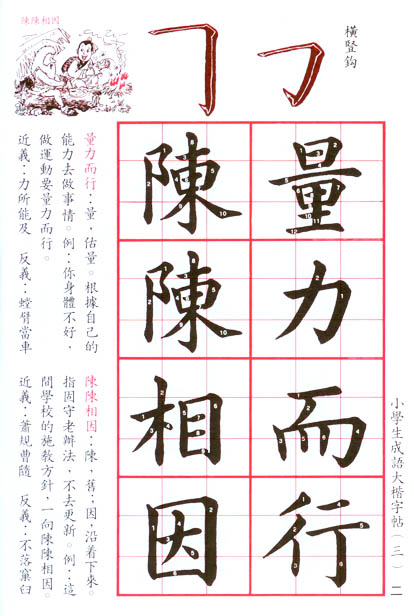 小學生成語大楷字帖(三) 二
橫豎鈎
量力而行
陳陳相因
陳陳相因
量力而行:量,估量。根據自己的
能力去做事情。例:你身體不好,
做運動要量力而行。
近義:力所能及 反義:螳臂當車
陳陳相因:陳,舊;因,沿着下來。
指固守老辦法,不去更新。例:這
間學校的施教方針,一向陳陳相因。
近義:蕭規曹隨 反義:不落窠臼